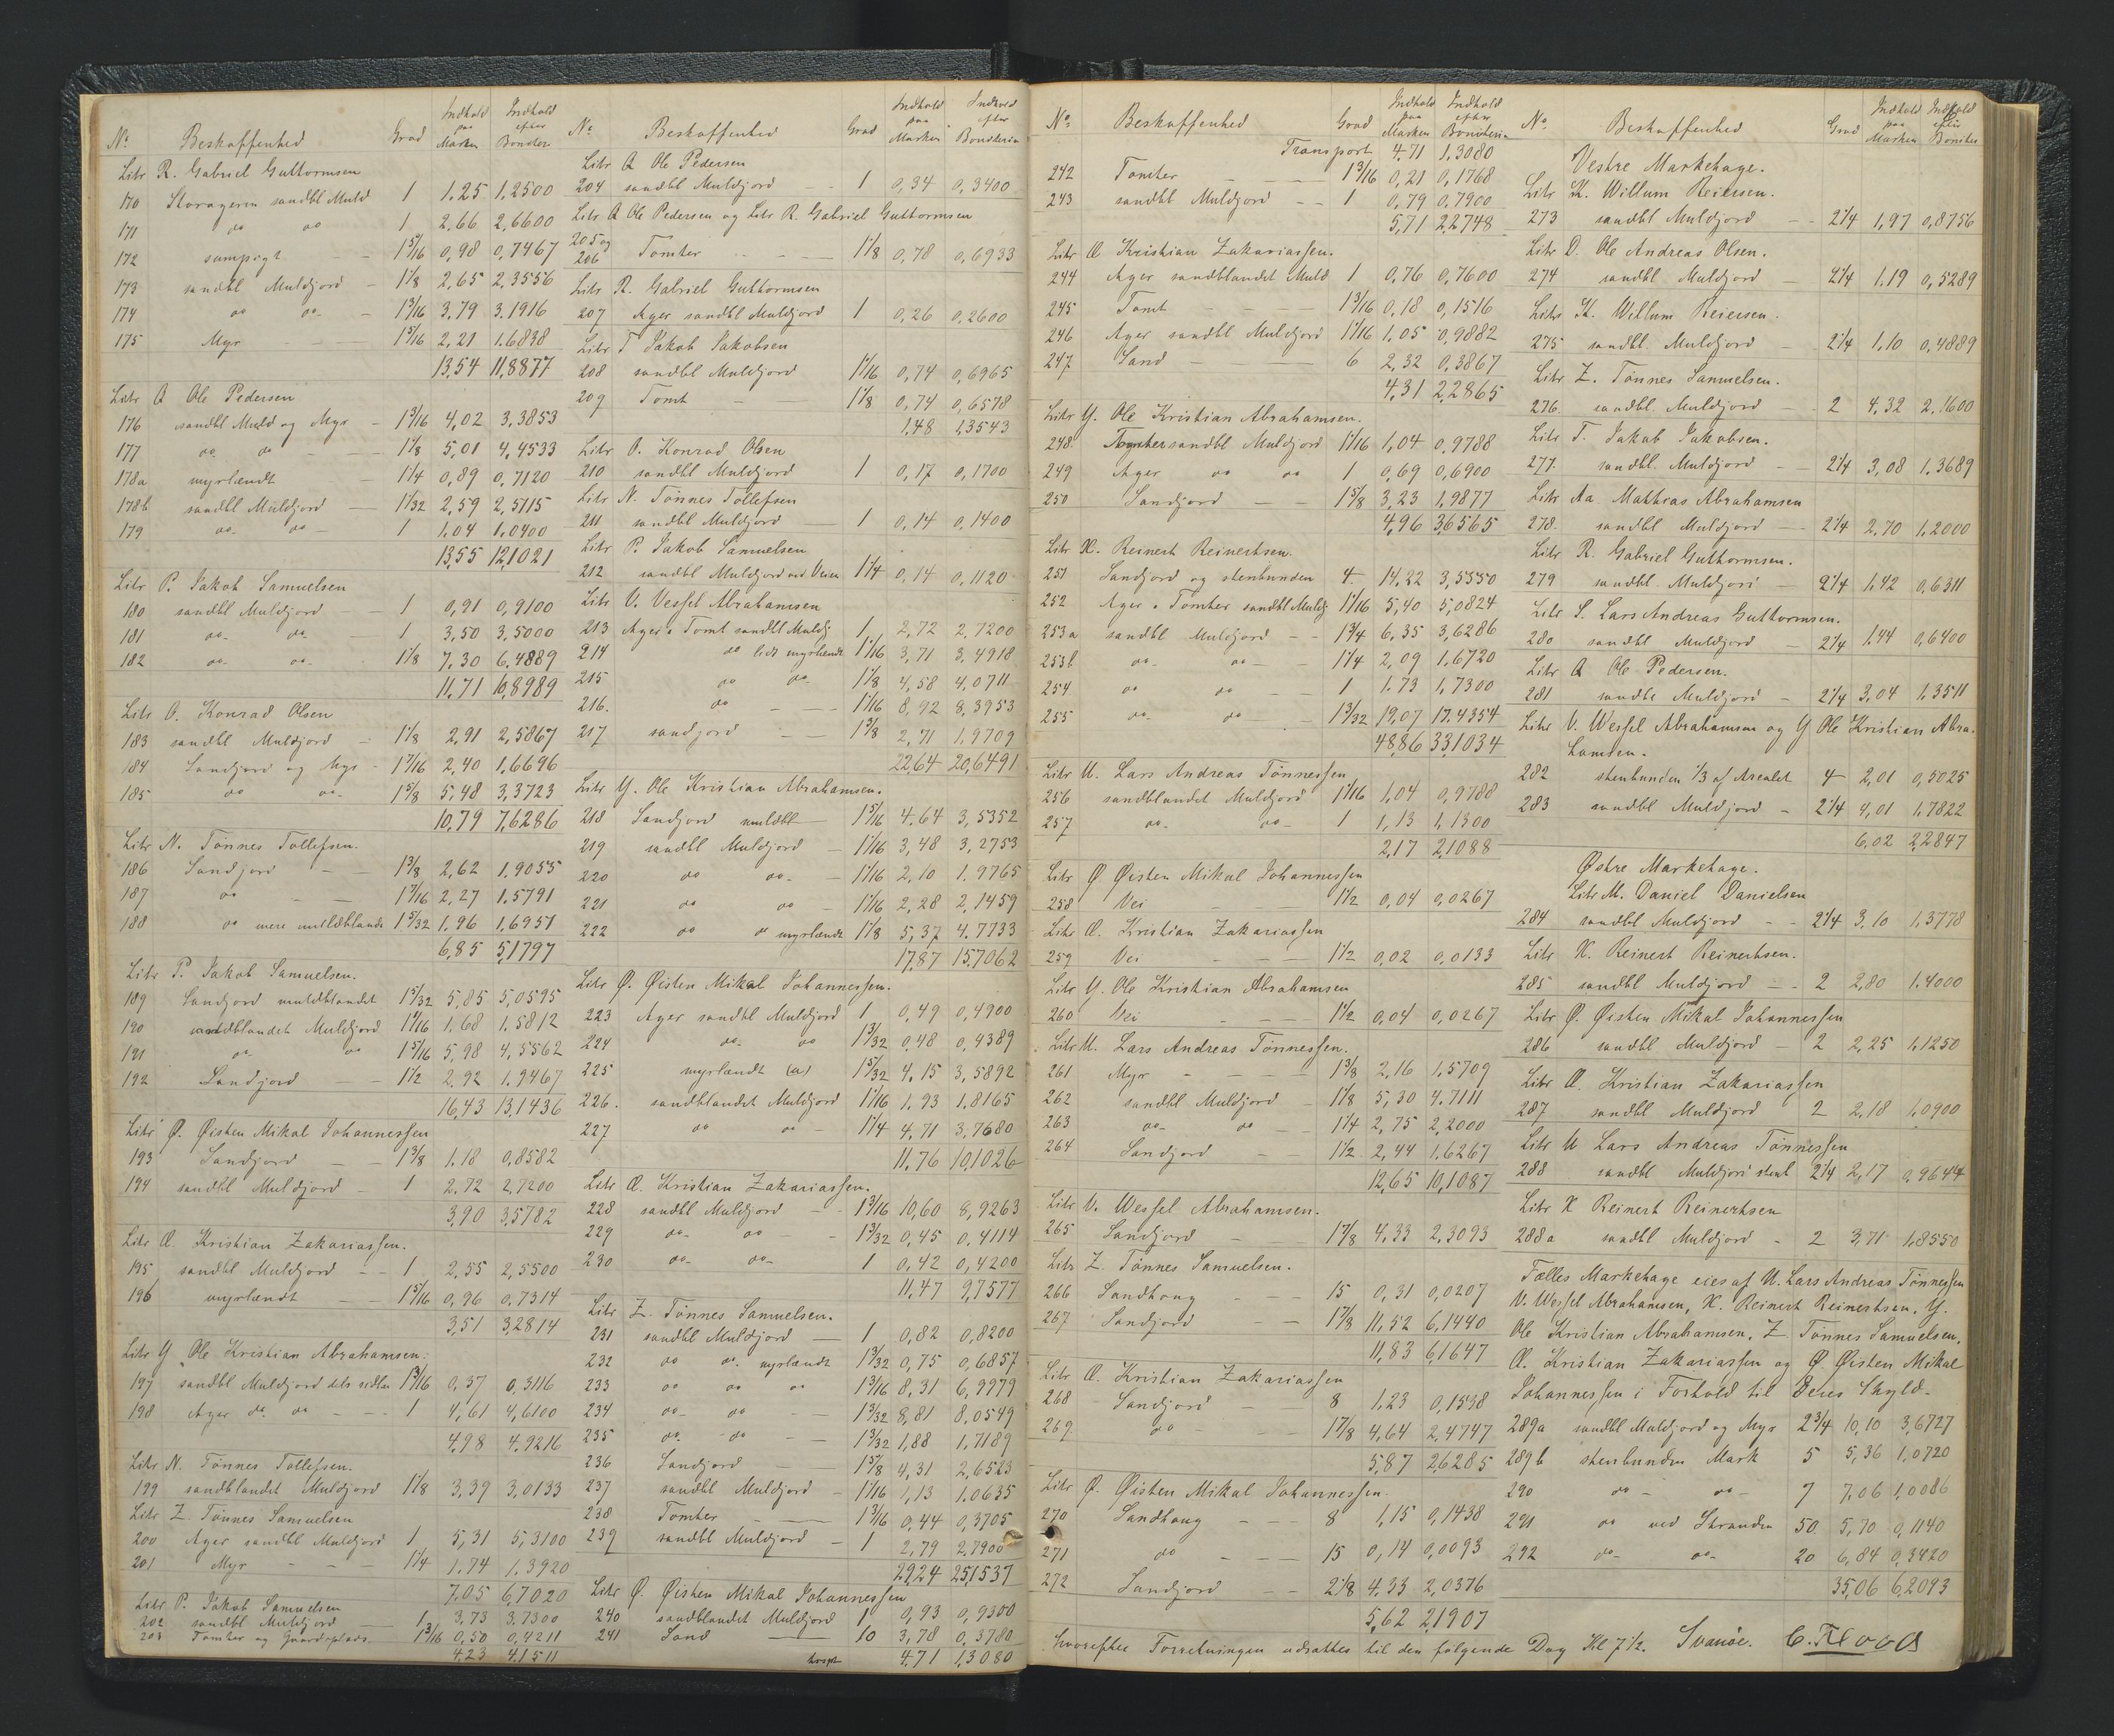 No Beskaffenhed Grad Indhold paa Marken Indhold efter Boniter
Litr R. Gabriel Guttormsen
170 Storageren sandbl Muld 1 1,25 1,2500
171 do do 1 2,66 2,6600
172 sumpigt — — 1 5/16 0,98 0,7467
173 sandbl Muldjord — 1 1/8 2,65 2,3556
174 do do — 1 3/16 3,79 3,1916
175 Myr — — — 1 5/16 2,21 1,6838
13,54 11,8877
Litr Q Ole Pedersen
176 sandbl Muld og Myr — 1 3/16 4,02 3,3853
177 do do — — 1 1/8 5,01 4,4533
178a myrlændt — 1 1/4 0,89 0,7120
178b sandbl Muldjord — 1 1/32 2,59 2,5115
179 do do — 1 1,04 1,0400
13,55 12,1021
Litr P. Jakob Samuelsen
180 sandbl Muldjord — — 1 0,91 0,9100
181 do do 1 3,50 3,5000
182 do do 1 1/8 7,30 6,4889
11,71 10,8989
Litr O. Konrad Olsen
183 sandbl Muldjord — 1 1/8 2,91 2,5867
184 Sandjord og Myr - 1 7/16 2,40 1,6696
185 do do 1 5/8 5,48 3,3723
10,79 7,6286
Litr N. Tønnes Tollefsen.
186 Sandjord — — 1 3/8 2,62 1,9055
187 do — — 1 7/16 2,27 1,5791
188 do mere muldblandt 1 5/32 1,96 1,6951
6,85 5,1797
Litr P. Jakob Samuelsen.
189 Sandjord muldblandet 1 5/32 5,85 5,0595
190 sandblandet Muldjord 1 1/16 1,68 1,5812
191 do do 1 5/16 5,98 4,5562
192 Sandjord — — 1 1/2 2,92 1,9467
16,43 13,1436
Litr Ø. Øisten Mikal Johannessen
193 Sandjord — — 1 3/8 1,18 0,8582
194 sandbl Muldjord — 1 2,72 2,7200
3,90 3,5782
Litr Æ. Kristian Zakariassen.
195 sandbl Muldjord — — 1 2,55 2,5500
196 myrlændt — 1 5/16 0,96 0,7314
3,51 3,2814
Litr Y Ole Kristian Abrahamsen.
197 sandbl Muldjord dels sidlen 1 3/16 0,37 0,3116
198 Ager do do — — 1 4,61 4,6100
4,98 4,9216
Litr N. Tønnes Tollefsen.
199 sandblandet Muldjord 1 1/8 3,39 3,0133
Litr Z. Tønnes Samuelsen
200 Ager sandbl Muldjord 1 5,31 5,3100
201 Myr - - — 1 1/4 1,74 1,3920
7,05 6,7020
Litr P. Jakob Samuelsen
202 sandbl Muldjord — 1 3,73 3,7300
203 Tomter og Gaardsplads 1 3/16 0,50 0,4211
4,23 4,1511
No Beskaffenhed Grad Indhold paa Marken Indhold efter Boniterin
Litr Q Ole Pedersen
204 sandbl Muldjord — - 1 0,34 0,3400
Litr Q Ole Pedersen og Litr R. Gabriel Guttormsen
205 og
206 Tomter - - — — 1 1/8 0,78 0,6933
Litr R. Gabriel Guttormsen
207 Ager sandbl Muldjord 1 0,26 0,2600
Litr T Jakob Jakobsen
208 sandbl Muldjord 1 1/16 0,74 0,6965
209 Tomt — 1 1/8 0,74 0,6578
1,48 1,3543
Litr O. Konrad Olsen
210 sandbl Muldjord 1 0,17 0,1700
Litr N. Tønnes Tollefsen
211 sandbl Muldjord — 1 0,14 0,1400
Litr P. Jakob Samuelsen
212 sandbl Muldjord ved Veien 1 1/4 0,14 0,1120
Litr V. Vessel Abrahamsen
213 Ager o Tomt sandbl Muldj 1 2,72 2,7200
214 do lidt myrlændt 1 1/16 3,71 3,4918
215 do do 1 1/8 4,58 4,0711
216. do — — 1 1/16 8,92 8,3953
217 sandjord — — 1 3/8 2,71 1,9709
22,64 20,6491
Litr Y. Ole Kristian Abrahamsen.
218 Sandjord muldbl — 1 5/16 4,64 3,5352
219 sandbl Muldjord — 1 1/16 3,48 3,2753
220 do do — 1 1/16 2,10 1,9765
221 do do — 1 1/16 2,28 2,1459
222 do do myrlændt 1 1/8 5,37 4,7733
17,87 15,7062
Litr Ø. Øisten Mikal Johannessen.
223 Ager sandbl Muldjord 1 0,49 0,4900
224 do do 1 3/32 0,48 0,4389
225 myrlændt (a) 1 5/32 4,15 3,5892
226. sandblandet Muldjord 1 1/16 1,93 1,8165
227 do do — 1 1/4 4,71 3,7680
11,76 10,1026
Litr Æ. Kristian Zakariassen.
228 sandbl Muldjord — - 1 3/16 10,60 8,9263
229 do do — - 1 3/32 0,45 0,4114
230 do do 1 0,42 0,4200
11,47 9,7577
Litr Z. Tønnes Samuelsen.
231 sandbl Muldjord — 1 0,82 0,8200
232 do do myrlændt 1 3/32 0,75 0,6857
233 do do do 1 3/16 8,31 6,9979
234 do do — — 1 3/32 8,81 8,0549
235 do do — 1 3/32 1,88 1,7189
236 Sandjord — — 1 5/8 4,31 2,6523
237 sandbl Muldjord - 1 1/16 1,13 1,0635
238 Tomter — — 1 3/16 0,44 0,3705
239 sandbl Muldjord — 1 2,79 2,7900
29,24 25,1537
Litr Ø. Øisten Mikal Johannessen
240 sandblandet Muldjord 1 0,93 0,9300
241 Sand — 10 3,78 0,3780
4,71 1,3080
No Beskaffenhed Grad Indhold paa Marken Indhold efter Boniterin
Transport 4,71 1,3080
242 Tomter — 1 3/16 0,21 0,1768
243 sandbl Muldjord - - 1 0,79 0,7900
5,71 2,2748
Litr Æ Kristian Zakariassen.
244 Ager sandblandet Muld 1 0,76 0,7600
245 Tomt - - — 1 3/16 0,18 0,1516
246 Ager sandbl Muldjord 1 1/16 1,05 0,9882
247 Sand — — 6 2,32 0,3867
4,31 2,2865
Litr Y. Ole Kristian Abrahamsen.
248. Tomter sandbl Muldjord 1 1/16 1,04 0,9788
249 Ager do do 1 0,69 0,6900
250 Sandjord — 1 5/8 3,23 1,9877
4,96 3,6565
Litr X. Reinert Reinertsen.
251 Sandjord og stenbunden 4. 14,22 3,5550
252 Ager o Tomter sandbl Muldj 1 1/16 5,40 5,0824
253a sandbl Muldjord - - 1 3/4 6,35 3,6286
253b do do — 1 1/4 2,09 1,6720
254 do do — 1 1,73 1,7300
255 do do — 1 3/32 19,07 17,4354
48,86 33,1034
Litr U. Lars Andreas Tønnessen
256 sandblandet Muldjord 1 1/16 1,04 0,9788
257 do do 1 1,13 1,1300
2,17 2,1088
Litr Ø Øisten Mikal Johannessen
258 Vei — — 1 1/2 0,04 0,0267
Litr Æ. Kristian Zakariassen
259 Vei - - — 1 1/2 0,02 0,0133
Litr Y. Ole Kristian Abrahamsen
260 Vei - - — 1 1/2 0,04 0,0267
Litr U. Lars Andreas Tønnessen.
261 Myr - - — 1 3/8 2,16 1,5709
262 sandbl Muldjord — 1 1/8 5,30 4,7111
263 do do — 1 1/4 2,75 2,2000
264 Sandjord - — 1 1/2 2,44 1,6267
12,65 10,1087
Litr V. Wessel Abrahamsen.
265 Sandjord - — 1 7/8 4,33 2,3093
Litr Z. Tønnes Samuelsen.
266 Sandhoug — — 15 0,31 0,0207
267 Sandjord — — 1 7/8 11,52 6,1440
11,83 6,1647
Litr Æ. Kristian Zakariassen
268 Sandjord - — 8 1,23 0,1538
269 do — — 1 7/8 4,64 2,4747
5,87 2,6285
Litr Ø. Øisten Mikal Johannessen.
270 Sandhoug - - — 8 1,15 0,1438
271 do — — 15 0,14 0,0093
272 Sandjord — - 2 1/8 4,33 2,0376
5,62 2,1907
No Beskaffenhed Grad Indhold paa Marken Indhold efter Boniter
Vestre Markehage.
Litr K. Willum Reiersen.
273 sandbl Muldjord — - 2 1/4 1,97 0,8756
Litr D. Ole Andreas Olsen.
274 sandbl Muldjord — 2 1/4 1,19 0,5289
Litr K. Willum Reiersen.
275 sandbl. Muldjord — 2 1/4 1,10 0,4889
Litr Z. Tønnes Samuelsen.
276 sandbl. Muldjord — 2 4,32 2,1600
Litr T. Jakob Jakobsen.
277. sandbl. Muldjord — 2 1/4 3,08 1,3689
Litr Aa. Mathias Abrahamsen
278. sandbl Muldjord — 2 1/4 2,70 1,2000
Litr R. Gabriel Guttormsen.
279 sandbl Muldjord — 2 1/4 1,42 0,6311
Litr S. Lars Andreas Guttormsen.
280 sandbl Muldjord — 2 1/4 1,44 0,6400
Litr Q Ole Pedersen.
281 sandbl Muldjord — 2 1/4 3,04 1,3511
Litr V. Wessel Abrahamsen og Y Ole Kristian Abra-
hamsen.
282 stenbunden 1/3 af Arealet 4 2,01 0,5025
283 sandbl Muldjord — 2 1/4 4,01 1,7822
6,02 2,2847
Østre Markehage.
Litr M. Daniel Danielsen
284 sandbl Muldjord — - 2 1/4 3,10 1,3778
Litr X. Reinert Reinertsen.
285 sandbl Muldjord — - 2 2,80 1,4000
Litr Ø. Øisten Mikal Johannessen
286 sandbl Muldjord — 2 2,25 1,1250
Litr Æ. Kristian Zakariassen
287 sandbl Muldjord 2 2,18 1,0900
Litr U Lars Andreas Tønnessen
288 sandbl Muldjord stenb 2 1/4 2,17 0,9644
Litr X Reinert Reinertsen
288a sandbl Muldjord - 2 3,71 1,8550
Fælles Markehage eies af U. Lars Andreas Tønnessen
V. Wessel Abrahamsen, X. Reinert Reinertsen, Y.
Ole Kristian Abrahamsen, Z. Tønnes Samuelsen,
Æ. Kristian Zakariassen og Ø. Øisten Mikal
Johannessen i Forhold til deres Skyld.
289a sandbl Muldjord og Myr 2 3/4 10,10 3,6727
289b stenbunden Mark 5 5,36 1,0720
290 do — do — 7 7,06 1,0086
291 do ved Stranden 50 5,70 0,1140
292 do do 20 6,84 0,3420
35,06 6,2093
hvorefter Forretningen udsattes til den følgende Dag Kl 7 1/2. Svanøe.